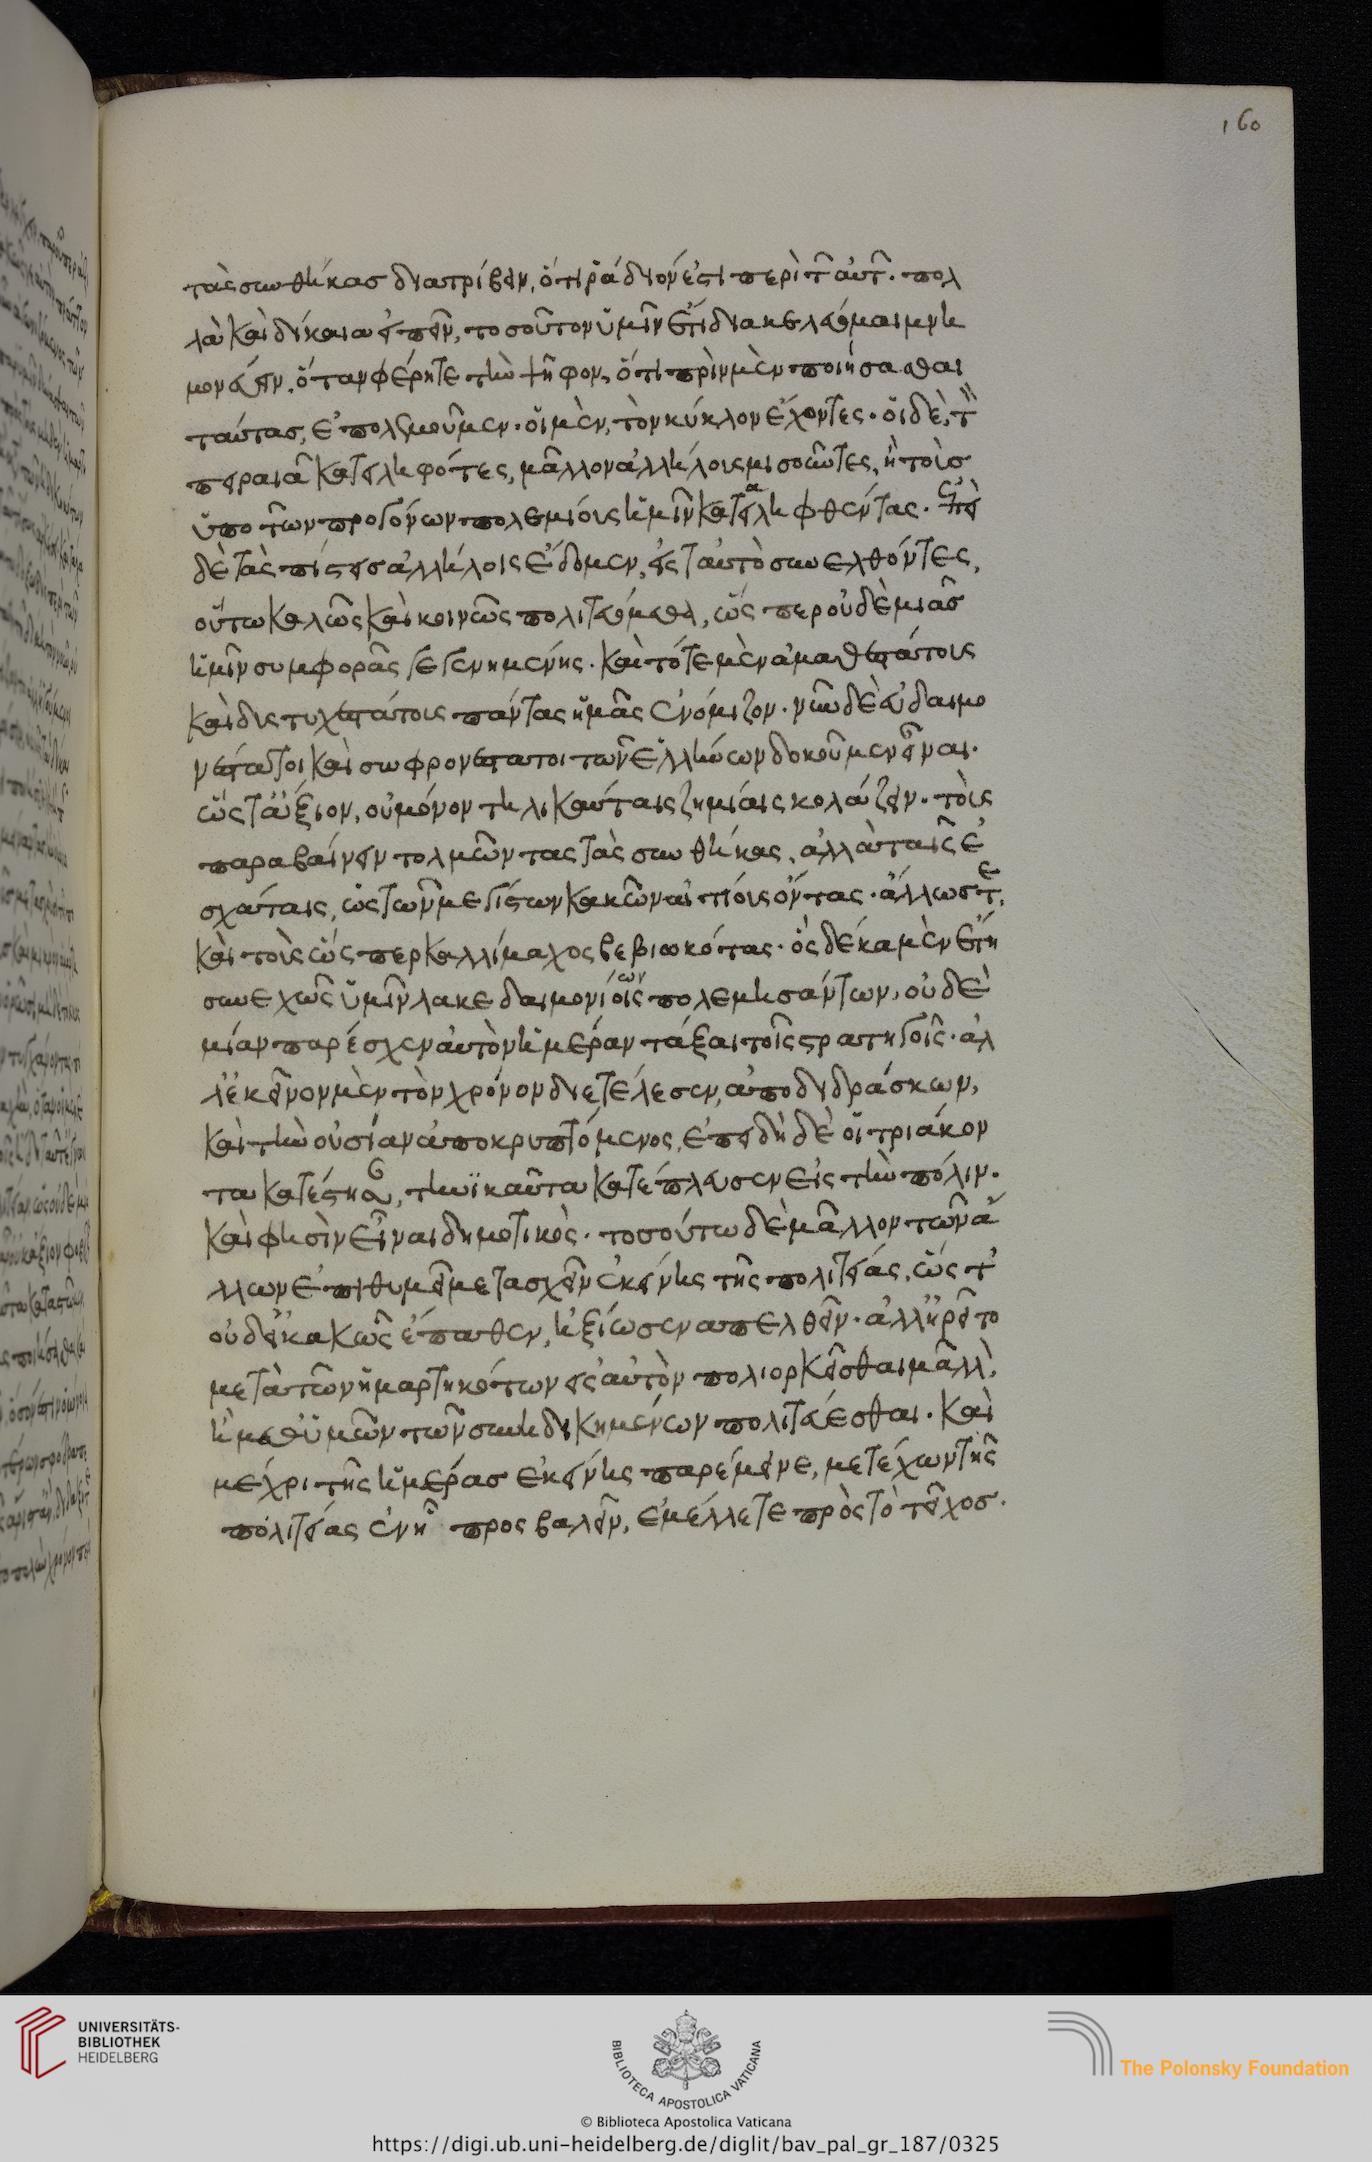 160
τὰς συνθήκας διατρίβειν, ὅτι ῥάδιόν ἐστι περὶ τ αυτ. πολ
λὰ καὶ δίκαια εἰπεῖν, τοσοῦτον ὑμῖν ἔτι διακελεύομαι μνη
μονεύειν. ὅταν φέρητε τὴν ψῆφον, ὅτι πρὶν μὲν ποιήσασθαι
ταύτας, ἐπολεμοῦμεν. οἱ μὲν, τὸν κύκλον ἔχοντες. οἱ δὲ, τ
πειραιᾶ κατειληφότες, μᾶλλον ἀλλήλοις μισοῦντες, ἢ τοὺς
ὑπὸ τῶν προγόνων πολεμίοις ἡμῖν καταλειφθέντας. ἐπει
δὲ τὰς πίστεις ἀλλήλοις ἔδομεν, εἰς ταυτὸ συνελθόντες,
οὕτω καλῶς καὶ κοινῶς πολιτευόμεθα, ὥς περ οὐδὲ μιᾶς
ἡμῖν συμφορᾶς γεγενημένης. καὶ τότε μὲν ἀμαθεστάτοις
καὶ διστυχεστάτοις πάντας ἡμᾶς ἐνόμιζον. νῦν δὲ εὐδαιμο
νέστατοι καὶ σωφρονέστατοι τῶν ἑλλήνων δοκοῦμεν εἶναι.
ὥς τ ἄξιον, οὐ μόνον τηλικαύταις ζημίαις κολάζειν. τοὺς
παραβαίνειν τολμῶντας τὰς συνθήκας, ἀλλὰ ταῖς ἐ
σχάταις, ὡς τῶν μεγίστων κακῶν αἰτίοις ὄντας. ἄλλως τε
καὶ τοὺς ὥς περ καλλίμαχος βεβιωκότας. ὃς δέκα μὲν ἔτη
συνεχῶς ὑμῖν λακεδαιμονίοις ων πολεμησάντων, οὐδὲ
μίαν παρέσχεν αὐτὸν ἡμέραν τάξαι τοῖς στρατηγοῖς. ἀλ
λ ἐκεῖνον μὲν τὸν χρόνον διετέλεσεν, ἀποδιδράσκων,
καὶ τὴν οὐσίαν ἀποκρυπτόμενος, ἐπειδὴ δὲ οἱ τριάκον
τα κατέστησαν, τηνικαῦτα κατέπλευσεν εἰς τὴν πόλιν.
καὶ φησὶν εἶναι δημοτικὸς. τοσούτω δὲ μᾶλλον τῶν ἄ
λλων ἐπιθυμεῖ μετασχεῖν ἐκείνης τῆς πολιτείας, ὥς τ
οὐδ εἰ κακῶς ἔπαθεν, ἠξίωσεν ἀπελθεῖν. ἀλλ ἡρεῖτο
μετὰ τῶν ἡμαρτηκότων εἰς αὐτὸν πολιορκεῖσθαι μᾶλλ
ἢ μεθ ὑμῶν τῶν συνηδικημένων πολιτεύεσθαι. καὶ
μέχρι τῆς ἡμέρας ἐκείνης παρέμεινε, μετέχων τῆς
πολιτείας ἐν ᾗ προς βαλεῖν, ἐμέλλετε πρὸς τὸ τεῖχος.
UNIVERSITÄTS-
BIBLIOTHEK
HEIDELBERG
BIBLIOTECA APOSTOLICA VATICANA
The Polonsky Foundation
© Biblioteca Apostolica Vaticana
https://digi.ub.uni-heidelberg.de/diglit/bav_pal_gr_187/0325